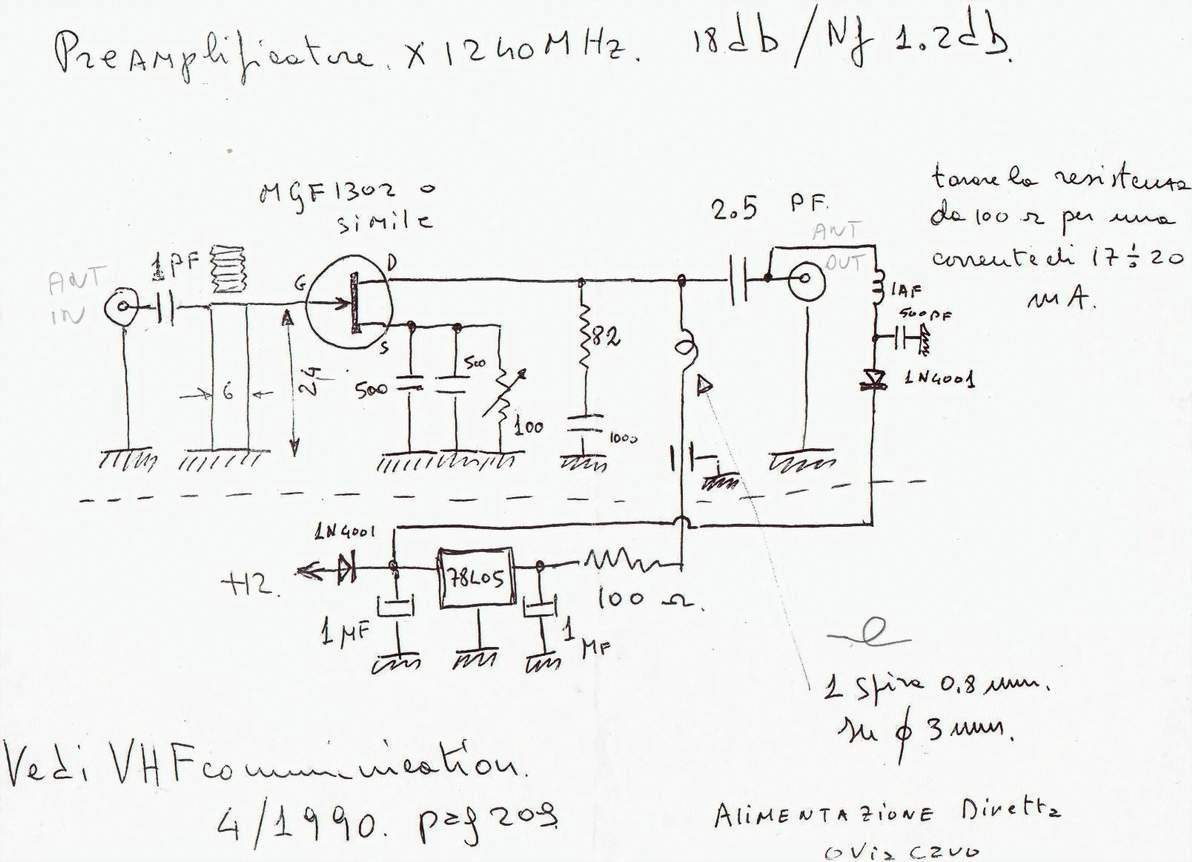 PreAmplificatore. x 1240MHz. 18db/Nf 1.2db.
MGF1302 o
simile
tarare la resistenza
da 100 Ω per una
corrente di 17÷20
mA.
2.5 PF.
ANT
OUT
ANT
IN
1PF
G
D
S
6
24
500
500
100
82
1000
1AF
500PF
1N4001
1N4001
+12.
78L05
100 Ω.
1 MF
1 MF
1 spira 0.8 mm.
su ϕ 3 mm.
Vedi VHF communication.
4/1990. pag 209
Alimentazione Diretta
o Via cavo